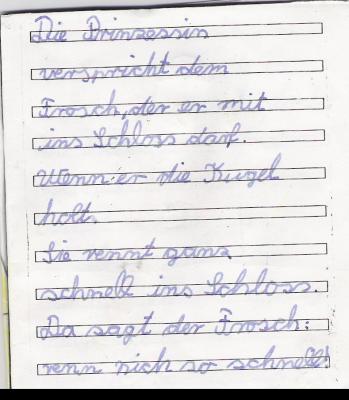 Die Prinzessin
verspricht dem
Frosch, der er mit
ins Schloss darf.
Wenn er die Kugel
holt.
Sie rennt ganz
schnell ins Schloss.
Da sagt der Frosch:
renn nich so schnell!